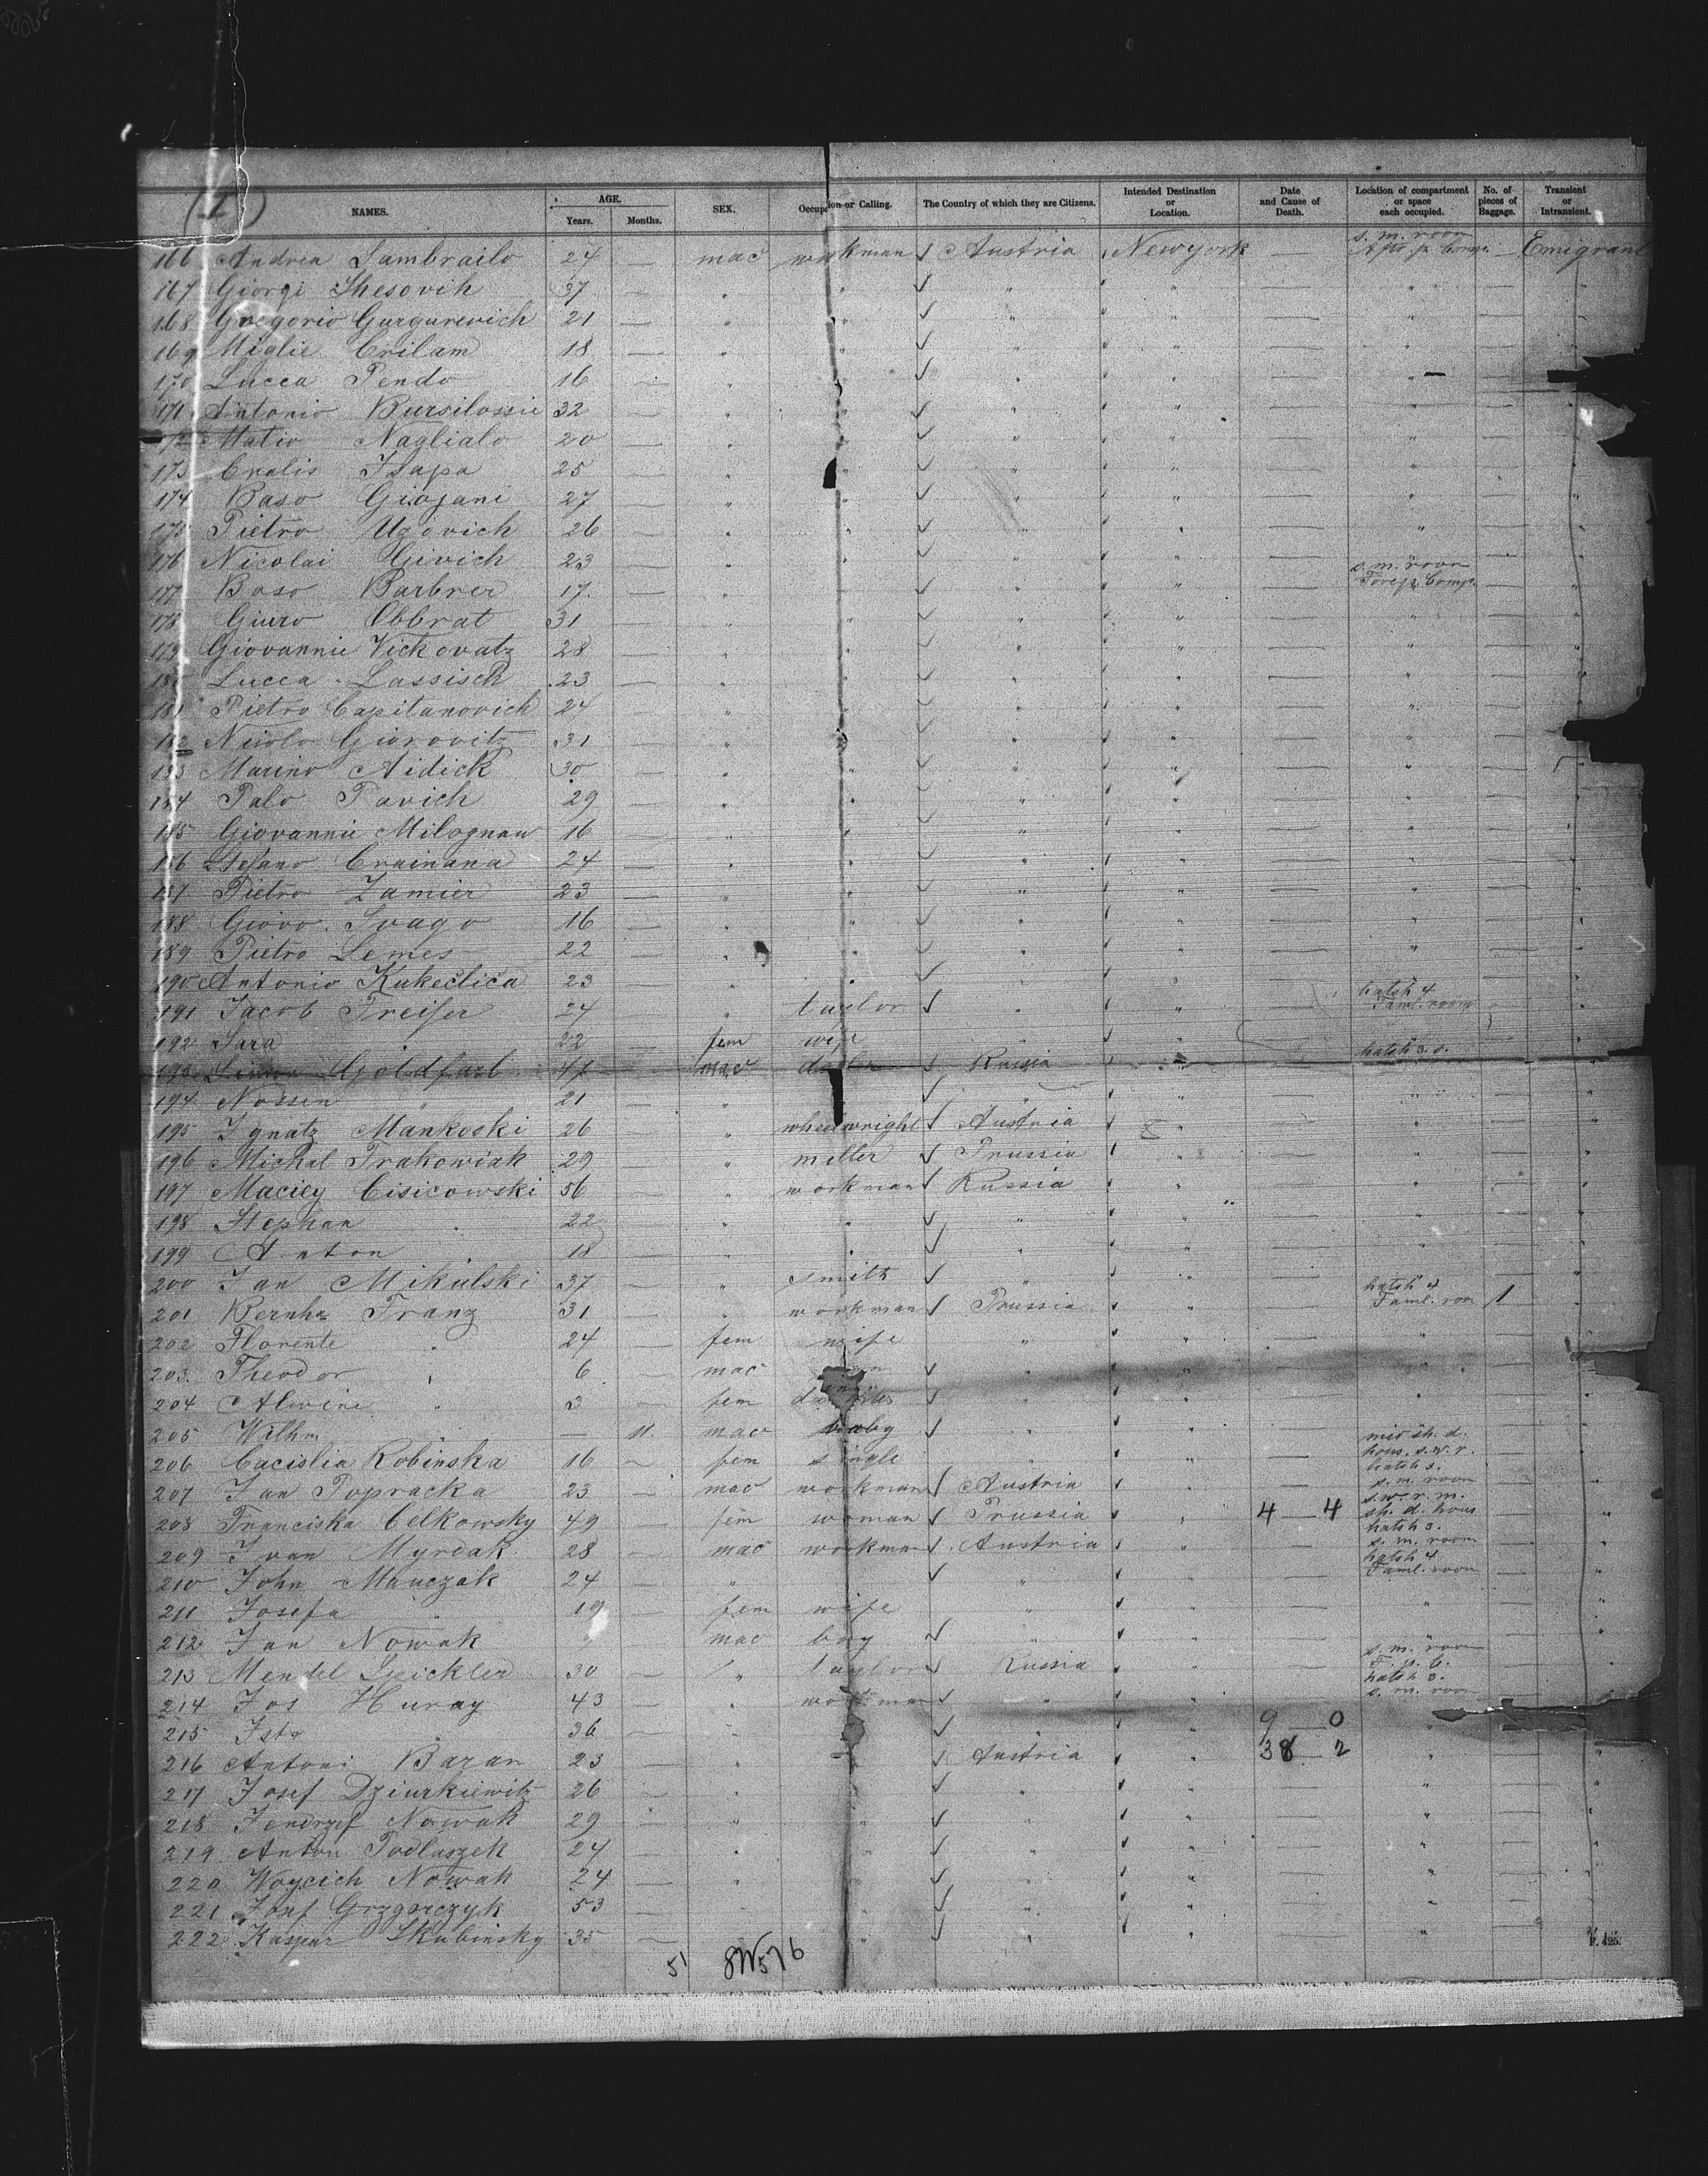 NAMES. AGE. Years. Months. SEX. Occupation or Calling. The Country of which they are Citizens. Intended Destination or Location. Date and Cause of Death. Location of compartment or space each occupied. No. of pieces of Baggage. Transient or Intransient.
166 Andrea Sambrailo 24 — mac workman Austria Newyork — s. m. room — Emigrant
167 Giorgi 37 — " " " " — " — "
168 Gregorio Gurgurevich 21 — " " " " — " — "
169 Miglie Crilam 18 — " " " " — " — "
170 Lucca Pendo 16 — " " " " — " —
171 Antonio 32 — " " " " — " —
172 Matio Naglialo 20 — " " " " — " —
173 Cralis 25 — " " " " — " —
174 Baso Giojani 27 — " " " " — " — "
175 Pietro Uzovich 26 — " " " " — " — "
176 Nicolai Givich 23 — " " " " — " — "
177 Boso Barbrer 17 — " " " " — s. m. room — "
178 Giuro Obbrat 31 — " " " " — " — "
179 Giovannie Vickovatz 28 — " " " " — " — "
180 Lucca Lassisch 23 — " " " " — " — "
181 Pietro Capitanovich 24 — " " " " — " — "
182 Nicolo Giorovitz 31 — " " " " — " —
183 Marino Aidick 30 — " " " " — " —
184 Palo Pavich 29 — " " " " — " — "
185 Giovannie Milognaw 16 — " " " " — " — "
186 Stefano Crainana 24 — " " " " — " — "
187 Pietro Zamier 23 — " " " " — " — "
188 Giovo. Ivago 16 — " " " " — " — "
189 Pietro Lemes 22 — " " " " — " — "
190 Antonio 23 — " " " " — " — "
191 Jacob Treiser 24 — " taylor " " — hatsh 4 Faml. room — "
192 Sara " 22 — fem wife " " — " — "
193 Simon Goldfarb 47 — mac Russia " — hatsh 3. — "
194 Nossen " 21 — " " " — " — "
195 Ignatz Mankoski 26 — " wheelwright Austria " — " — "
196 Michal Trakowiak 29 — " miller Prussia " — " — "
197 Maciey Cisicowski 56 — " workman Russia " — " — "
198 Stephan " 22 — " " " " — " — "
199 Anton " 18 — " " " " — " — "
200 Jan Mikulski 37 — " smith " " — " — "
201 Bernha Franz 31 — " workman Prussia " — hatsh 4 Faml. roo 1 "
202 Florente " 24 — fem wife " " — " —
203. Theodor " 6 — mac " " — " —
204 Alwine " 3 — fem " " — " —
205 Wilhm " — 11. mac baby " " — " —
206 Cacislia Robinska 16 — fem single " " — mid sh. d. hous. s. w. r. —
207 Jan Popracka 23 — mac workman Austria " — hatsh 3. s. m. room — "
208 Franciska Celkowsky 49 — fem woman Prussia " 4 — 4 s. w. r. m. sh. d. hous — "
209 Ivan Myrdak 28 — mac workman Austria " — hatsh 3. s. m. room — "
210 John Mauczak 24 — " " " — hatsh 4 Faml. room — "
211 Josefa " 19 — fem wife " " — " — "
212 Jan Nowak — mac boy " " — " — "
213 Mendel Spickler 30 — " taylor Russia " — s. m. room —
214 Jos Huray 43 — " workman " " — hatsh 3. s. m. room —
215 36 — " " " 9 — 0 " —
216 Antoni Bazan 23 — " Austria " 38 2 " — "
217 Josef Dziurkiewitz 26 — " " " — " — "
218 Jendrzef Nowak 29 — " " " — " — "
219 Anton Podlaszek 24 — " " " — " — "
220 Woycich Nowak 24 — " " " — " — "
221 Josef Grzgorczyk 53 — " " " — " — "
222 Kaspar Skubinsky 35 — " " " — " —